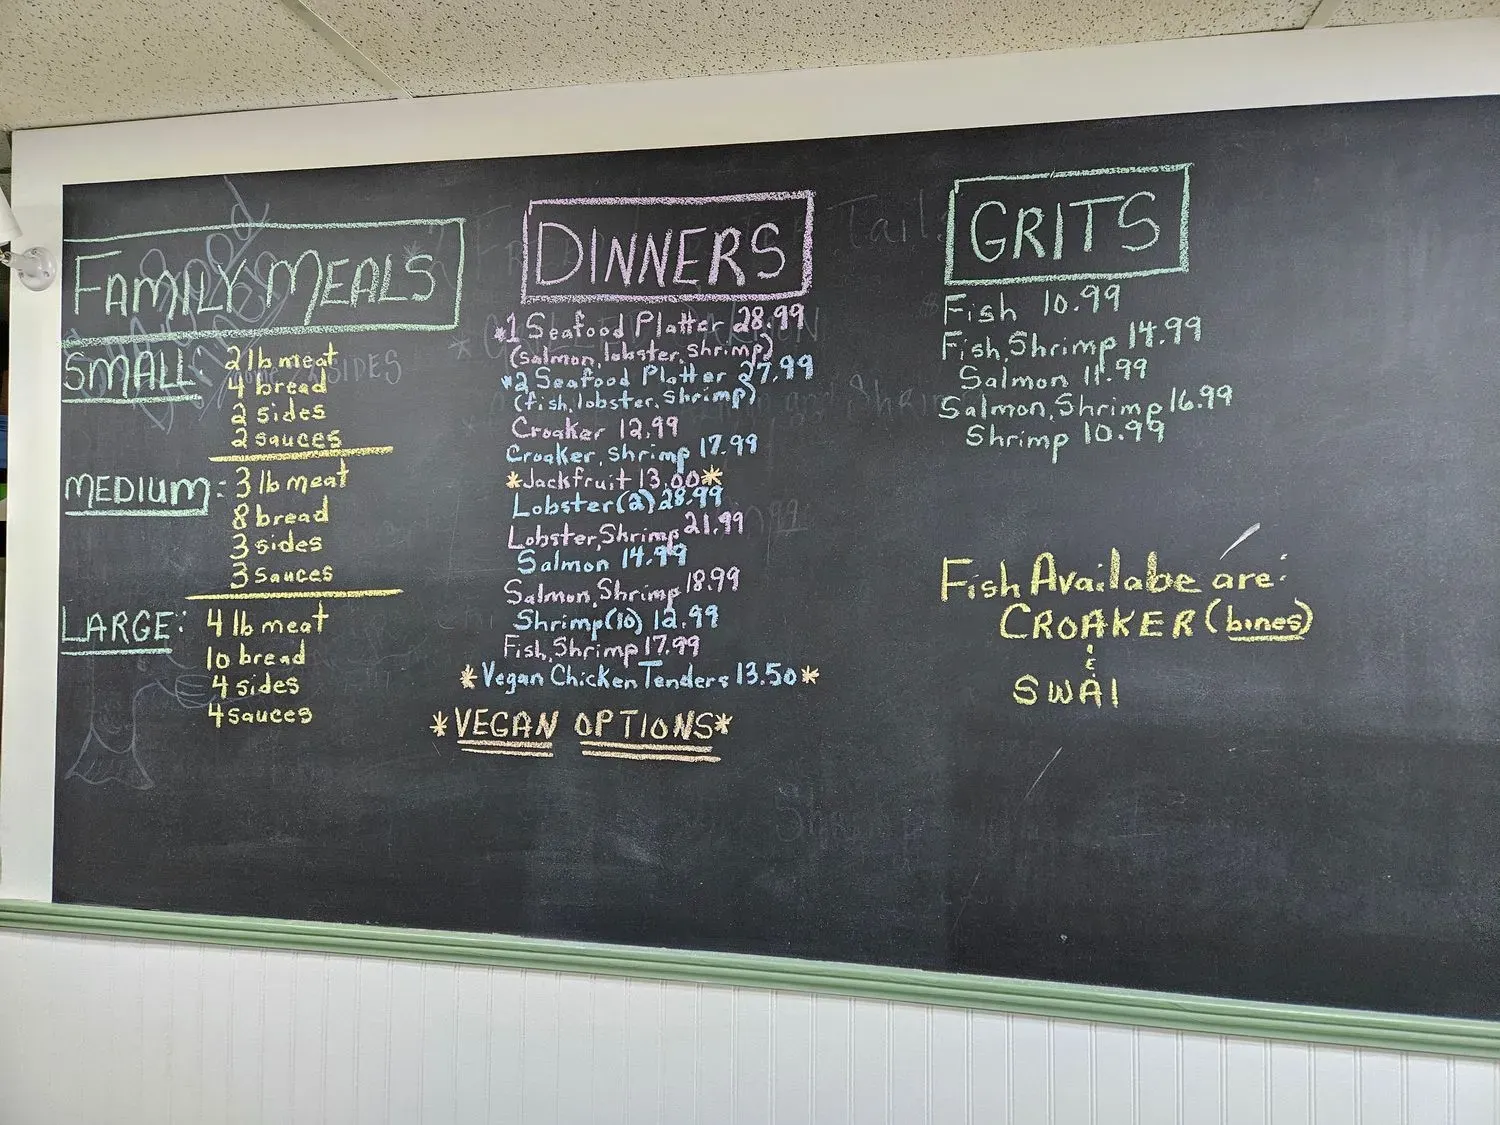 FAMILY MEALS
SMALL: 2 lb meat
4 bread
2 sides
2 sauces
MEDIUM: 3 lb meat
8 bread
3 sides
3 sauces
LARGE: 4 lb meat
10 bread
4 sides
4 sauces
DINNERS
*1 Seafood Platter 28.99
(salmon, lobster, shrimp)
*2 Seafood Platter 27.99
(fish, lobster, shrimp)
Croaker 12.99
Croaker, shrimp 17.99
*Jackfruit 13.00*
Lobster (2) 28.99
Lobster, Shrimp 21.99
Salmon 14.99
Salmon, Shrimp 18.99
Shrimp (10) 12.99
Fish, Shrimp 17.99
*Vegan Chicken Tenders 13.50*
*VEGAN OPTIONS*
GRITS
Fish 10.99
Fish, Shrimp 14.99
Salmon 11.99
Salmon, Shrimp 16.99
Shrimp 10.99
Fish Availabe are:
CROAKER (bines)
&
SWAI
SIDES
Tail
Shrimp